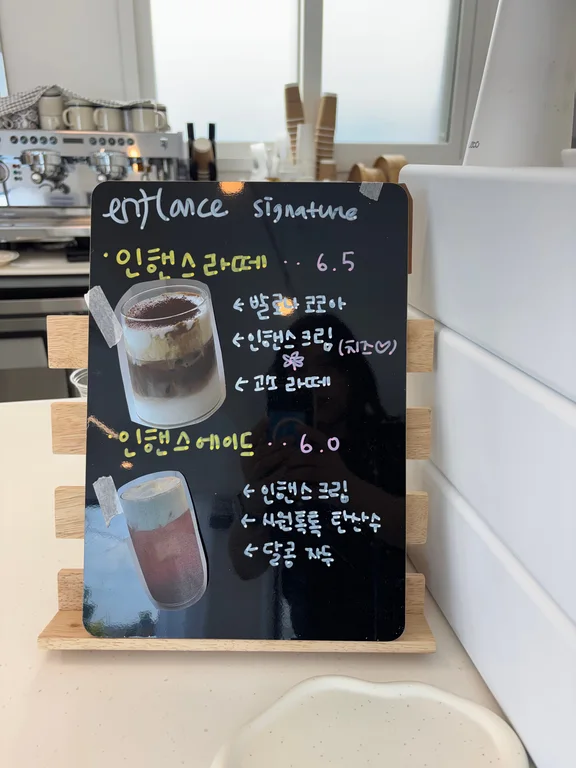 enhance signature
· 인핸스라떼 ·· 6.5
← 발로나 코코아
← 인핸스크림 (치즈♡)
← 고프 라떼
· 인핸스에이드 ·· 6.0
← 인핸스크림
← 시원톡톡 탄산수
← 달콤 자두